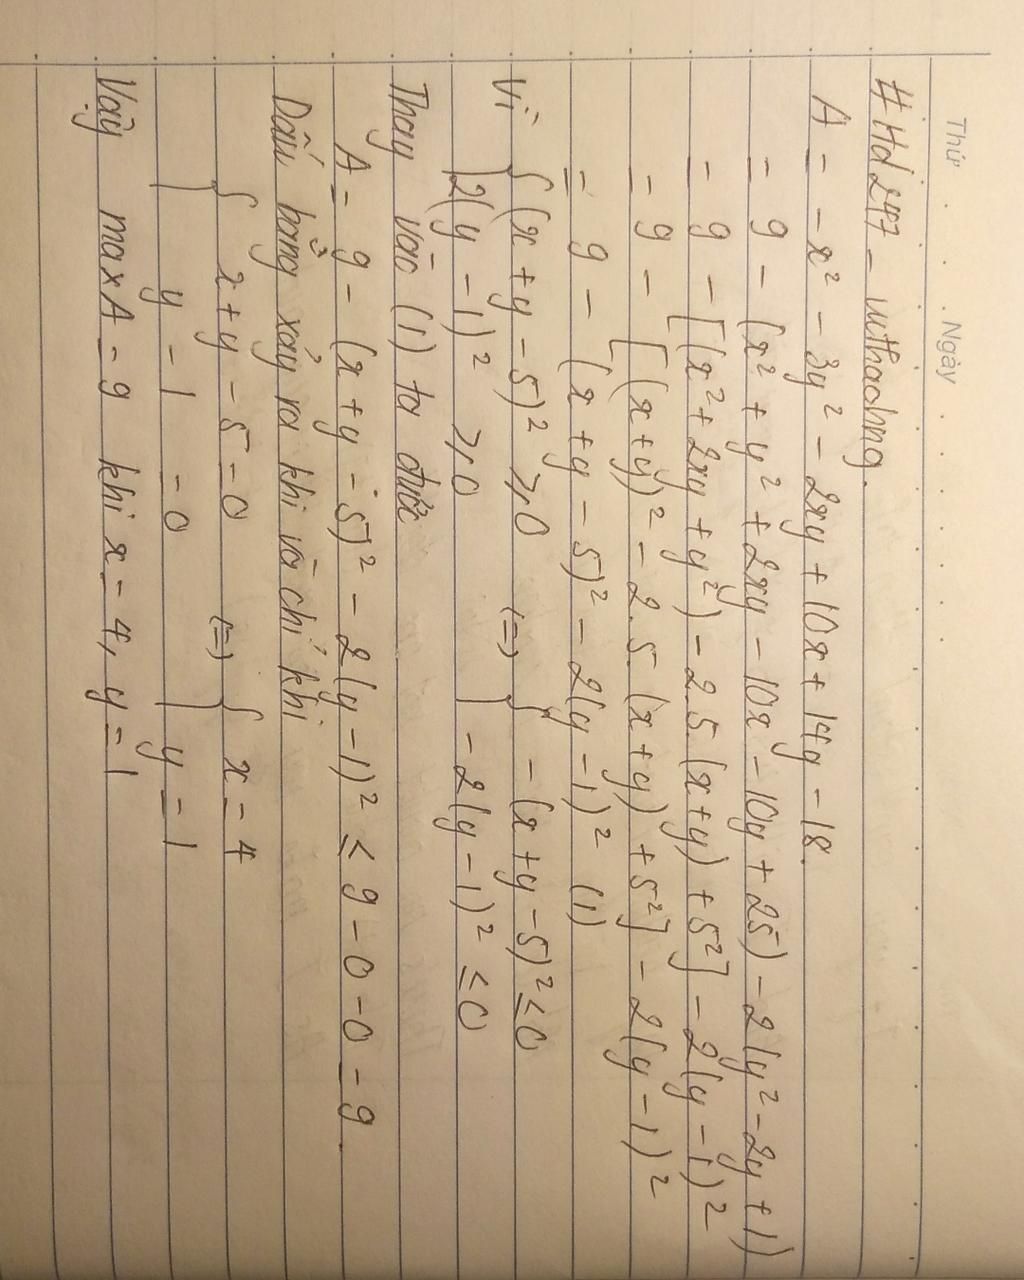 Thứ . . . Ngày . . . . . .
# Hd247 - nuthadng.
A = - x² - 3y² - 2xy + 10x + 14y - 18.
= 9 - (x² + y² + 2xy - 10x - 10y + 25) - 2(y² - 2y + 1)
= 9 - [(x² + 2xy + y²) - 2.5.(x+y) + 5²] - 2(y - 1)²
= 9 - [(x + y)² - 2.5.(x + y) + 5²] - 2(y - 1)²
= 9 - (x + y - 5)² - 2(y - 1)² (1)
Vì { (x + y - 5)² ≥ 0 (=) { - (x + y - 5)² ≤ 0
2(y - 1)² ≥ 0 - 2(y - 1)² ≤ 0
Thay vào (1) ta được
A = 9 - (x + y - 5)² - 2(y - 1)² ≤ 9 - 0 - 0 = 9.
Dấu bằng xảy ra khi và chỉ khi
{ x + y - 5 = 0 (=) { x = 4
y - 1 = 0 y = 1
Vậy max A = 9 khi x = 4, y = 1